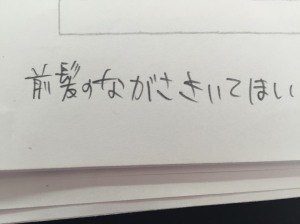 前髪のながさきいてほしい